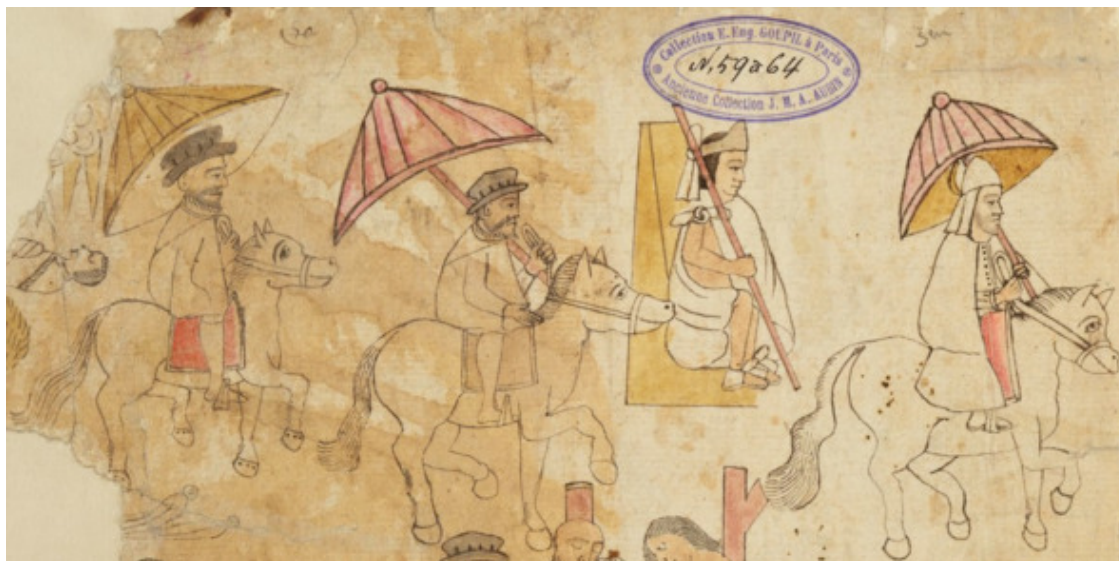 Collection E. Eug. GOUPIL à Paris
N. 59 a 64
Ancienne Collection J. M. A. AUBIN